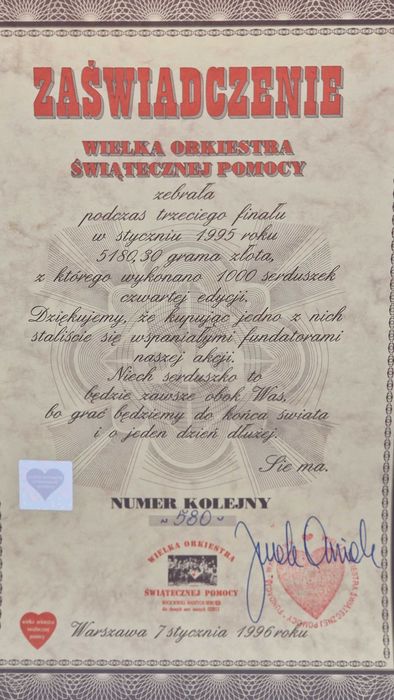 ZAŚWIADCZENIE
WIELKA ORKIESTRA
ŚWIĄTECZNEJ POMOCY
zebrała
podczas trzeciego finału
w styczniu 1995 roku
5180,30 grama złota,
z którego wykonano 1000 serduszek
czwartej edycji.
Dziękujemy, że kupując jedno z nich
staliście się wspaniałymi fundatorami
naszej akcji.
Niech serduszko to
będzie zawsze obok Was,
bo grać będziemy do końca świata
i o jeden dzień dłużej.
Sie ma.
NUMER KOLEJNY
580
WIELKA ORKIESTRA
ŚWIĄTECZNEJ POMOCY
wielka orkiestra
świątecznej
pomocy
Warszawa 7 stycznia 1996 roku